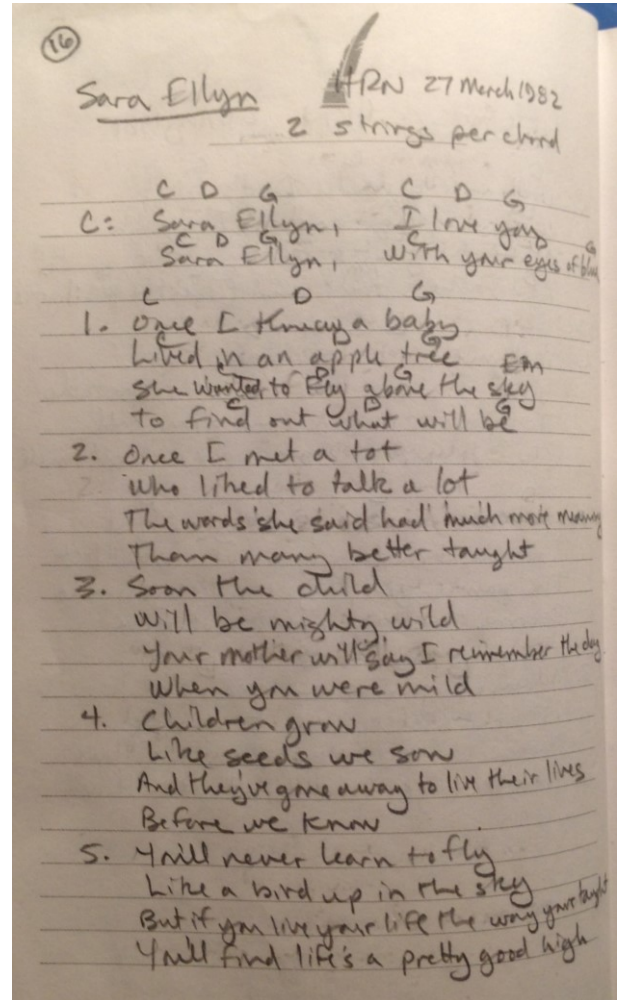 16
Sara Ellyn HRN 27 March 1982
2 strings per chord
C D G C D G
C: Sara Ellyn, I love you
C D G C G
Sara Ellyn, with your eyes of blue
C D G
1. Once I knew a baby
C G
Lived in an apple tree Em
D G
She wanted to fly above the sky
C D G
to find out what will be
2. Once I met a tot
who liked to talk a lot
The words she said had much more meaning
Than many better taught
3. Soon the child
will be mighty wild
Your mother will say I remember the day
When you were mild
4. Children grow
Like seeds we sow
And they've gone away to live their lives
Before we know
5. You'll never learn to fly
Like a bird up in the sky
But if you live your life the way your taught
You'll find life's a pretty good high